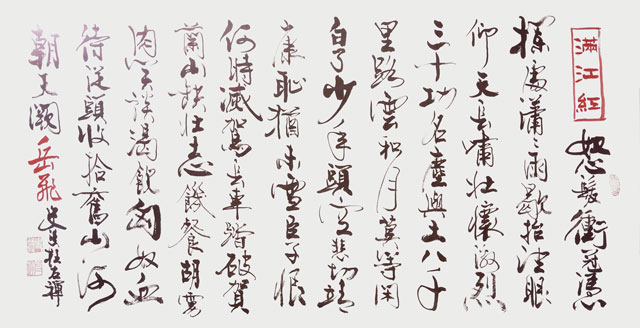 滿江紅
怒髮衝冠憑
欄處瀟瀟雨歇抬望眼
仰天長嘯壯懷激烈
三十功名塵與土八千
里路雲和月莫等閑
白了少年頭空悲切靖
康恥猶未雪臣子恨
何時滅駕長車踏破賀
蘭山缺壯志饑餐胡虜
肉笑談渴飲匈奴血
待從頭收拾舊山河
朝天闕岳飛